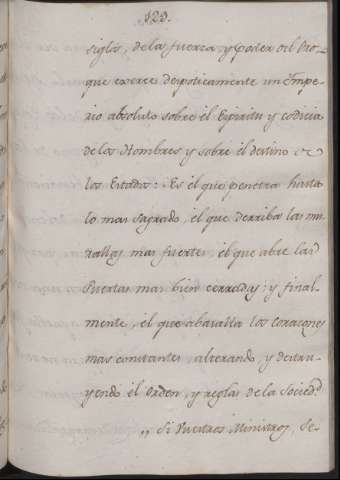 123.
siglos, de la fuerza y poder del Oro=
que exerce despoticamente un Impe-
rio absoluto sobre el Espiritu y codicia
de los Hombres y sobre el destino de
los Estados: Es el que penetra hasta
lo mas sagrado, el que derriba las mu-
rallas mas fuertes, el que abre las
Puertas mas bien cerradas; y final-
mente, el que abasalla los corazones
mas constantes, alterando, y destru-
yendo el Orden, y reglas de la Socied.d
,, Si Vuestros Ministros, Se-